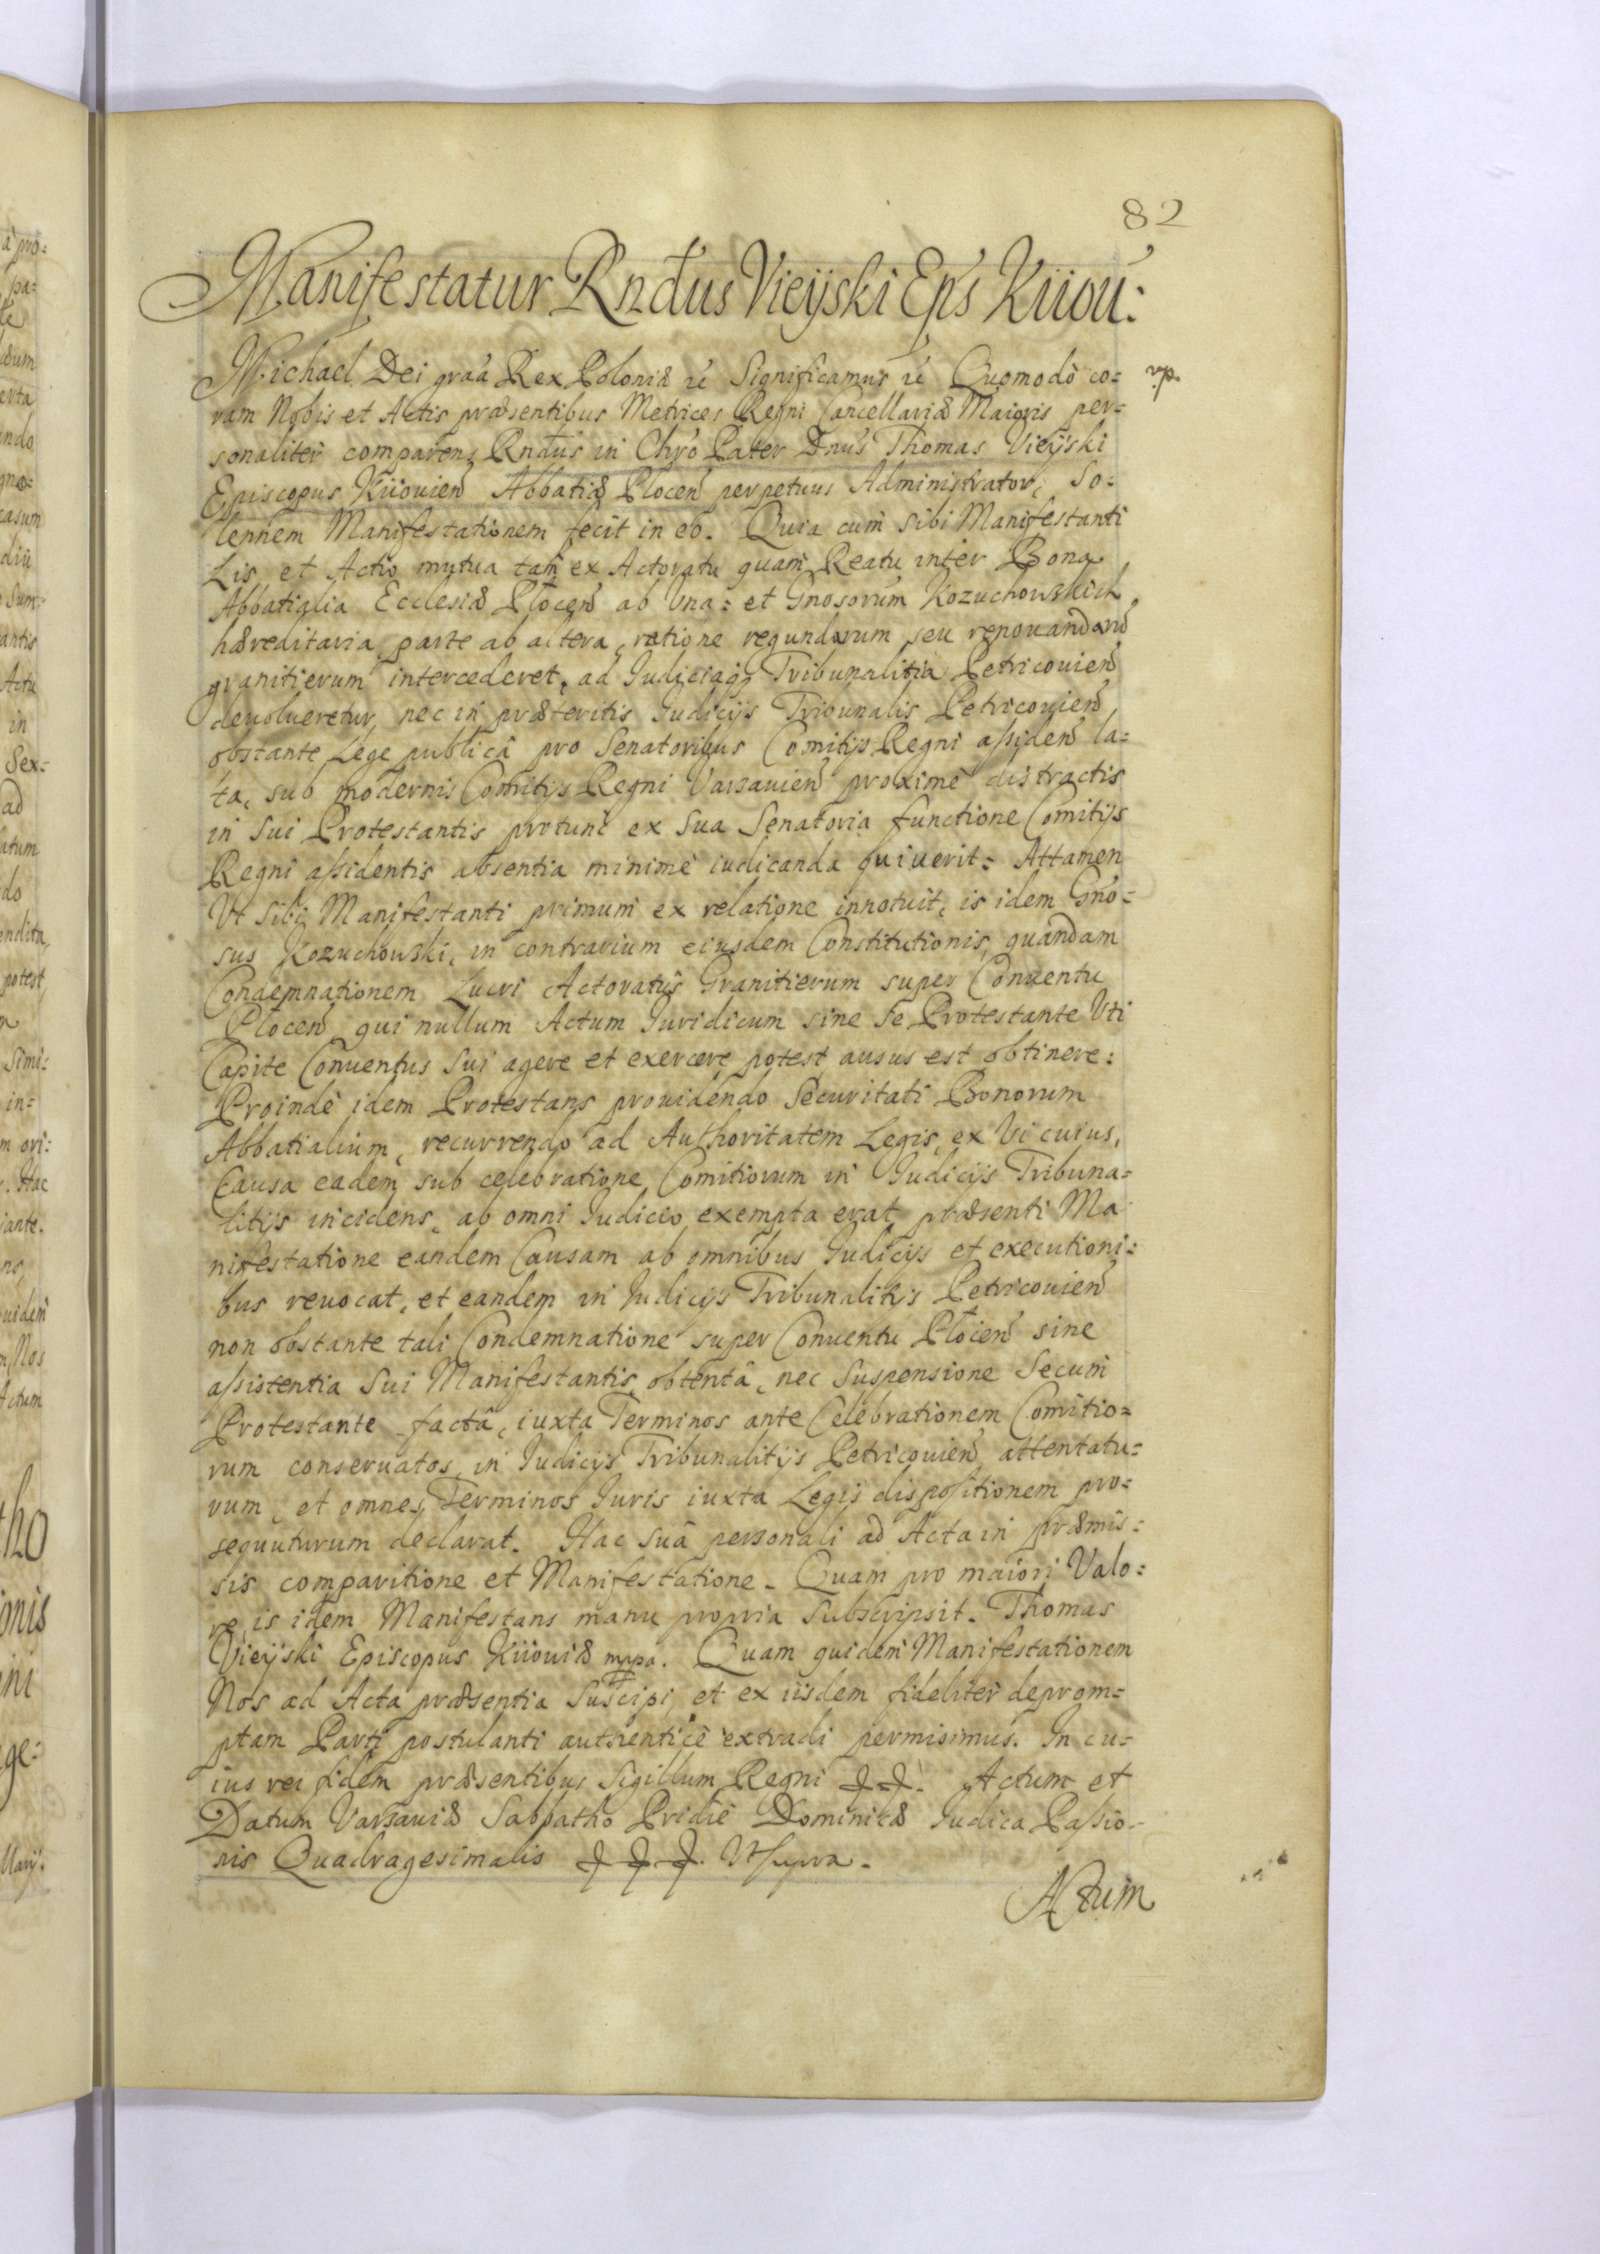 82
Manifestatur Rndus Vieÿski Eps Kiiou:
Michael Dei graa Rex Poloniæ rc Significamus rc Quomodo co= mp.
ram Nobis et Actis præsentibus Metrices Regni Cancellariæ Maioris per=
sonaliter comparens Rndus in Chro Pater Dnus Thomas Vieÿski
Episcopus Kiiouien Abbatiæ Plocen perpetuus Administrator, So=
lennem Manifestationem fecit in eo. Quia cum sibi Manifestanti
Lis et Actio mutua tam ex Actoratu quam Reatu inter Bona
Abbatialia Ecclesiæ Plocen ab Una= et Gnosorum Kozuchowskich
hæreditaria parte ab altera, ratione regundorum seu renouandoru
granitierum intercederet, ad Iudiciaqz Tribunalitia Petricouien
deuolueretur, nec in præteritis Iudicijs Tribunalis Petricouien,
obstante Lege publicâ pro Senatoribus Comitijs Regni assiden la=
ta, sub modernis Comitijs Regni Varsauien proximè distractis
in Sui Protestantis protunc ex Sua Senatoria functione Comitijs
Regni assidentis absentia minimè iudicanda quiuerit: Attamen
Vt Sibi Manifestanti primum ex relatione innotuit, is idem Gno=
sus Kozuchowski, in contrarium eiusdem Constitutionis, quandam
Condemnationem Lucri Actoratûs Granitierum super Conuentu
Plocen qui nullum Actum Iuridicum sine Se Protestante Uti
Capite Conuentus Sui agere et exercere potest ausus est obtinere:
Proindè idem Protestans prouidendo Securitati Bonorum
Abbatialium, recurrendo ad Authoritatem Legis, ex Vi cuius,
Causa eadem sub celebratione Comitiorum in Iudicijs Tribuna=
litijs incidens, ab omni Iudicio exempta erat præsenti Ma
nifestatione eandem Causam ab omnibus Iudicijs et executioni=
bus reuocat, et eandem in Iudicijs Tribunalitijs Petricouien
non obstante tali Condemnatione super Conuentu Plocen sine
assistentia Sui Manifestantis obtentâ, nec Suspensione Secum
Protestante factâ, iuxta Terminos ante Celebrationem Comitio=
rum conseruatos, in Iudicijs Tribunalitijs Petricouien attentatu=
rum, et omnes Terminos Iuris iuxta Legis dispositionem pro=
sequuturum declarat. Hac Suâ personali ad Acta in præmis=
sis comparitione et Manifestatione. Quam pro maiori Valo=
re is idem Manifestans manu propria Subscripsit. Thomas
Vieÿski Episcopus Kiiouiæ mppa. Quam quidem Manifestationem
Nos ad Acta præsentia Suscipi, et ex iisdem fideliter deprom=
ptam Parti postulanti authenticè extradi permisimus. In cu=
ius rei fidem præsentibus Sigillum Regni Actum et
Datum Varsauiæ Sabbatho Pridie Dominicæ Iudica Passio=
nis Quadragesimalis Vtsupra.
Actum